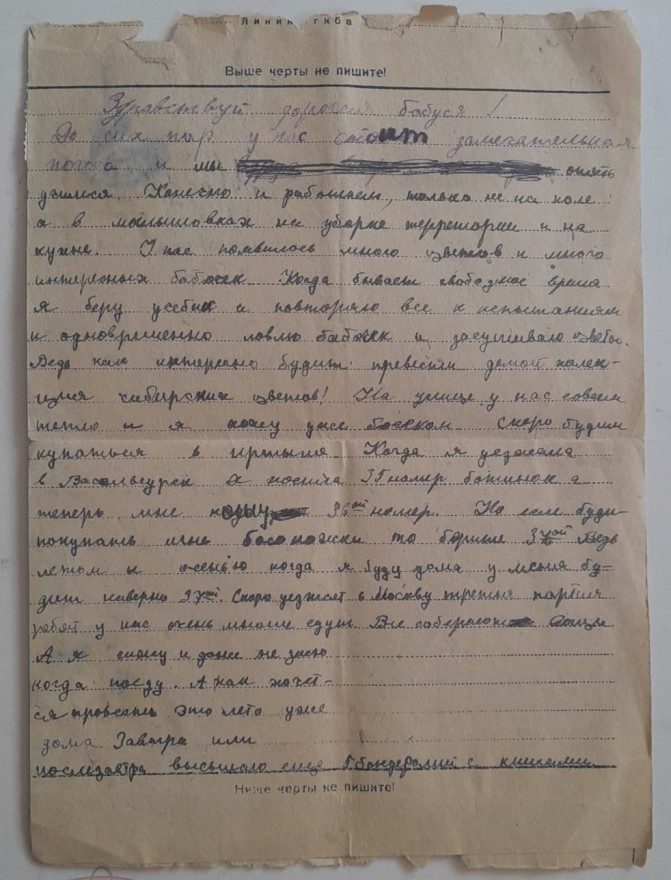 Линия гиба
Выше черты не пишите!
Здравствуй дорогая бабуся!
До сих пор у нас стоит замечательная
погода и мы опять
учимся. Конечно и работаем, только не на поле
а в малышовках на уборке терретории и на
кухне. У нас появилось много цветов и много
интересных бабочек. Когда бывает свободное время
я беру учебник и повторяю все к испытаниям
и одновременно ловлю бабочек и засушиваю цветы.
Ведь как интересно будит превести домой колек-
ция сибирских цветов! На улице у нас совсем
тепло и я хожу уже босиком. Скоро будим
купаться в иртыше Когда я уезжала
в Васильсурск я носила 35 номер ботинок а
теперь мне 36ой номер. Но если буди-
покупать мне босоножки то бориые Ведь
летом к осенью когда я буду дома у меня бу-
дит наверно 37ой. Скоро уезжает в Москву третья партия
ребят у нас очень многие едут Все собирают
А я сижу и даже не знаю
когда поеду. А как хочет-
ся провесть это лето уже
дома Завтра или
послезавтра высылаю еще бандеролий с книгами
Ниже черты не пишите!